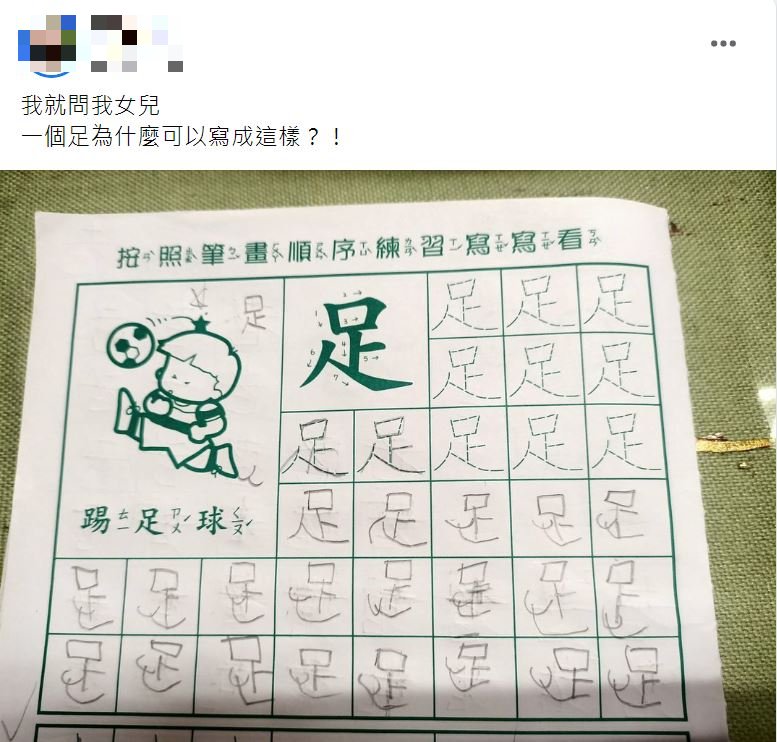 我就問我女兒
一個足為什麼可以寫成這樣？！
按ㄢˋ照ㄓㄠˋ筆ㄅㄧˇ畫ㄏㄨㄚˋ順ㄕㄨㄣˋ序ㄒㄩˋ練ㄌㄧㄢˋ習ㄒㄧˊ寫ㄒㄧㄝˇ寫ㄒㄧㄝˇ看ㄎㄢˋ
足 足 足 足 足
1 2 3 4 5 6 7
足 足 足
足 足 足 足 足
踢ㄊㄧ足ㄗㄨˊ球ㄑㄧㄡˊ 足 足 足 足 足
足 足 足 足 足 足 足 足
足 足 足 足 足 足 足 足